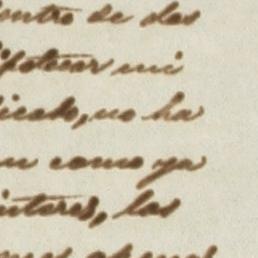 entro de dos
ipotecar mi
icado, no ha
n como ya
interes, los